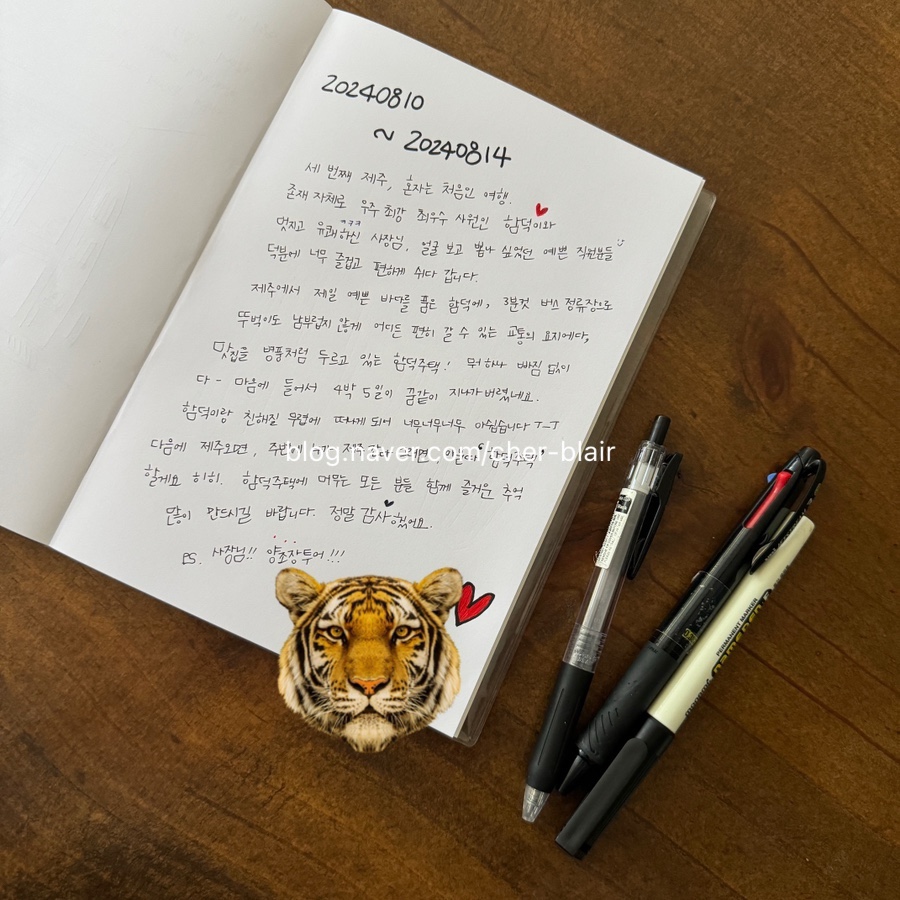 20240810
~ 20240814
세 번째 제주, 혼자는 처음인 여행.
존재 자체로 우주 최강 최우수 사원인 함덕이와
ㅋㅋㅋ
멋지고 유쾌하신 사장님, 얼굴 보고 뽑나 싶었던 예쁜 직원분들
덕분에 너무 즐겁고 편하게 쉬다 갑니다.
제주에서 제일 예쁜 바다를 품은 함덕에, 3분컷 버스정류장으로
뚜벅이도 남부럽지 않게 어디든 편히 갈 수 있는 교통의 요지에다,
맛집을 병풍처럼 두르고 있는 함덕주택! 뭐하나 빠짐 없이
다- 마음에 들어서 4박 5일이 꿈같이 지나가버렸네요.
함덕이랑 친해질 무렵에 떠나게 되어 너무너무너무 아쉽습니다 ㅜ-ㅜ
다음에 제주오면, "함덕주택"
blog.naver.com/cher-blair
할게요 히히. 함덕주택에 머무는 모든 분들 함께 즐거운 추억
많이 만드시길 바랍니다. 정말 감사했어요.
PS. 사장님!! 양조장투어!!!
PERMANENT MARKER